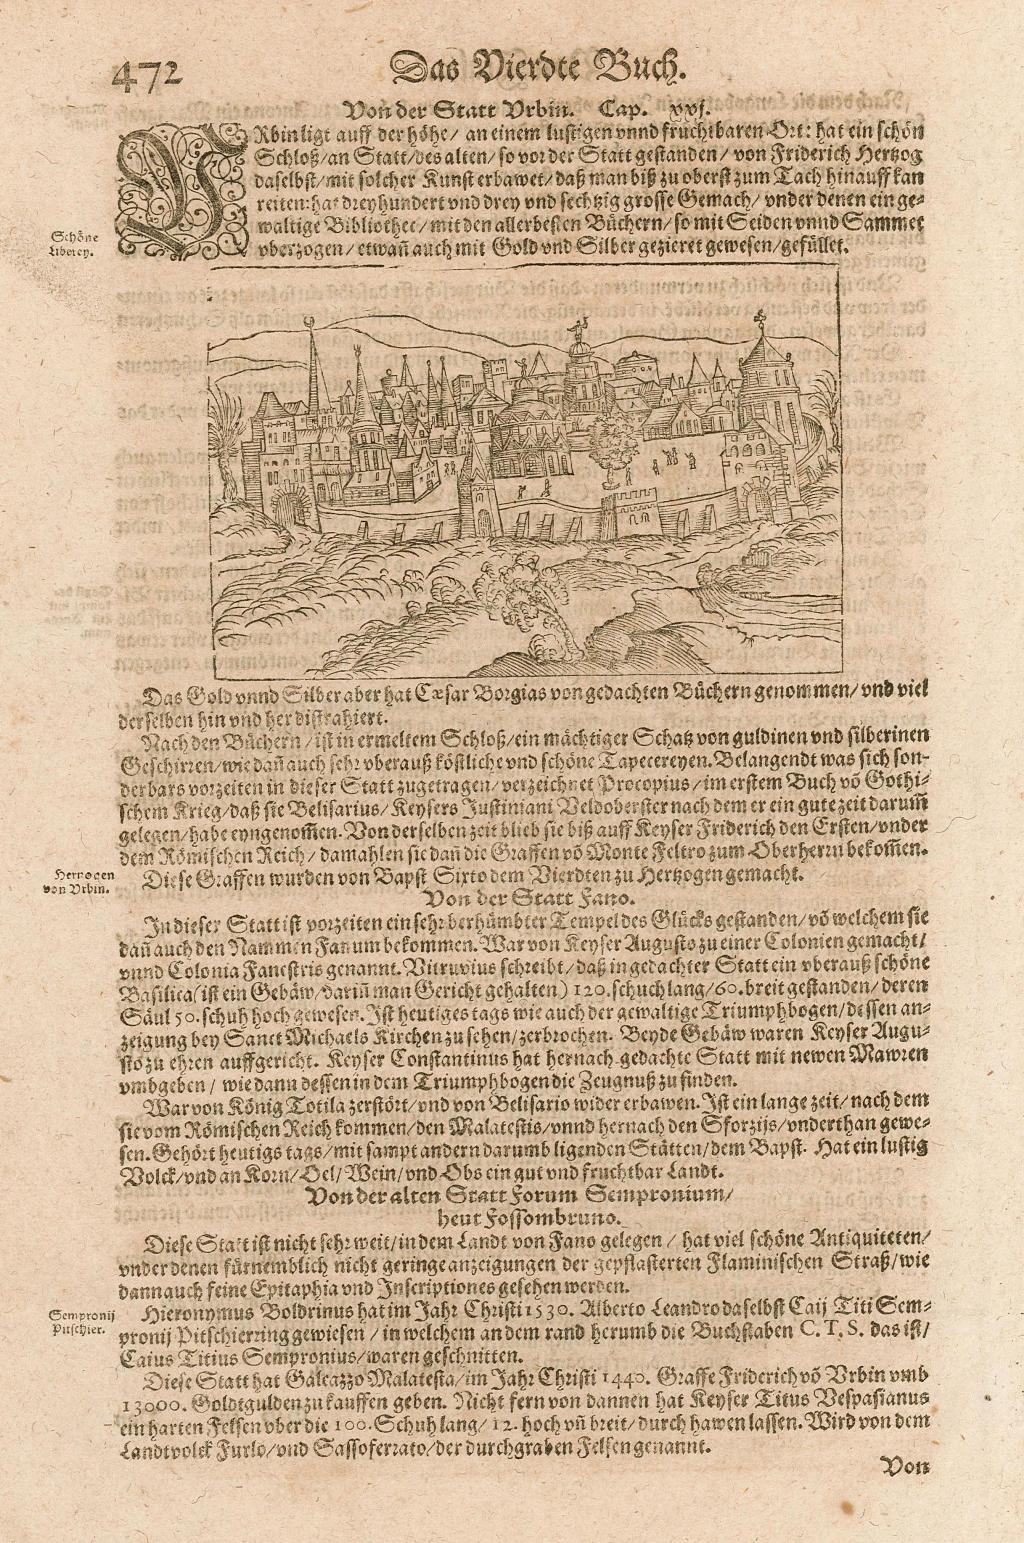 472
Das Vierdte Buch.
Von der Statt Vrbin. Cap. xxj.
VRbin ligt auff der höhe/ an einem lustigen vnnd fruchtbaren Ort: hat ein schön
Schloß/ an Statt/ des alten/ so vor der Statt gestanden/ von Friderich Hertzog
daselbst/ mit solcher Kunst erbawet/ daß man biß zu oberst zum Tach hinauff kan
reiten: hat dreyhundert vnd drey vnd sechtzig grosse Gemach/ vnder denen ein ge-
waltige Bibliothec/ mit den allerbesten Büchern/ so mit Seiden vnnd Sammet
vberzogen/ etwañ auch mit Gold vnd Silber gezieret gewesen/ gefüllet.
Schöne
Liberey.
Das Gold vnnd Silber aber hat Cæsar Borgias von gedachten Büchern genommen/ vnd viel
derselben hin vnd her distrahiert.
Nach den Büchern/ ist in ermeltem Schloß/ ein mächtiger Schatz von guldinen vnd silberinen
Geschirren/ wie dañ auch sehr vberauß köstliche vnd schöne Tapecereyen. Belangendt was sich son-
derbars vorzeiten in dieser Statt zugetragen/ verzeichnet Procopius/ im erstem Buch võ Gothi-
schem Krieg/ daß sie Belisarius/ Keysers Justiniani Veldoberster nach dem er ein gute zeit darum̃
gelegen/ habe eyngenom̃en. Von derselben zeit blieb sie biß auff Keyser Friderich den Ersten/ vnder
dem Römischen Reich/ damahlen sie dañ die Graffen võ Monte Feltro zum Oberherrn bekom̃en.
Diese Graffen wurden von Bapst Sixto dem Vierdten zu Hertzogen gemacht.
Hertzogen
von Vrbin.
Von der Statt Fano.
In dieser Statt ist vorzeiten ein sehr berhümbter Tempel des Glücks gestanden/ võ welchem sie
dañ auch den Nammen Fanum bekommen. War von Keyser Augusto zu einer Colonien gemacht/
vnnd Colonia Fanestris genannt. Vitruvius schreibt/ daß in gedachter Statt ein vberauß schöne
Basilica (ist ein Gebäw/ dariñ man Gericht gehalten) 120. schuch lang/ 60. breit gestanden/ deren
Säul 50. schuh hoch gewesen. Ist heutiges tags wie auch der gewaltige Triumphbogen/ dessen an-
zeigung bey Sanct Michaels Kirchen zu sehen/ zerbrochen. Beyde Gebäw waren Keyser Augu-
sto zu ehren auffgericht. Keyser Constantinus hat hernach gedachte Statt mit newen Mawren
vmbgeben/ wie dann dessen in dem Triumphbogen die Zeugnuß zu finden.
War von König Totila zerstört/ vnd von Belisario wider erbawen. Ist ein lange zeit/ nach dem
sie vom Römischen Reich kommen/ den Malatestis/ vnnd hernach den Sforzijs/ vnderthan gewe-
sen. Gehört heutigs tags/ mit sampt andern darumb ligenden Stätten/ dem Bapst. Hat ein lustig
Volck/ vnd an Korn/ Oel/ Wein/ vnd Obs ein gut vnd fruchtbar Landt.
Von der alten Statt Forum Sempronium/
heut Fossombruno.
Diese Statt ist nicht sehr weit/ in dem Landt von Fano gelegen/ hat viel schöne Antiquiteten/
vnder denen fürnemblich nicht geringe anzeigungen der gepflasterten Flaminischen Straß/ wie
dann auch feine Epitaphia vnd Inscriptiones gesehen werden.
Sempronij
Pitschier.
Hieronymus Boldrinus hat im Jahr Christi 1530. Alberto Leandro daselbst Caij Titi Sem-
pronij Pitschierring gewiesen/ in welchem an dem rand herumb die Buchstaben C. T. S. das ist/
Caius Titius Sempronius/ waren geschnitten.
Diese Statt hat Galeazzo Malatesta/ im Jahr Christi 1440. Graffe Friderich võ Vrbin vmb
13000. Goldtgulden zu kauffen geben. Nicht fern von dannen hat Keyser Titus Vespasianus
ein harten Felsen vber die 100. Schuh lang/ 12. hoch vñ breit/ durch hawen lassen. Wird von dem
Landtvolck Furlo/ vnd Sassoferrato/ der durchgraben Felsen genannt.
Von